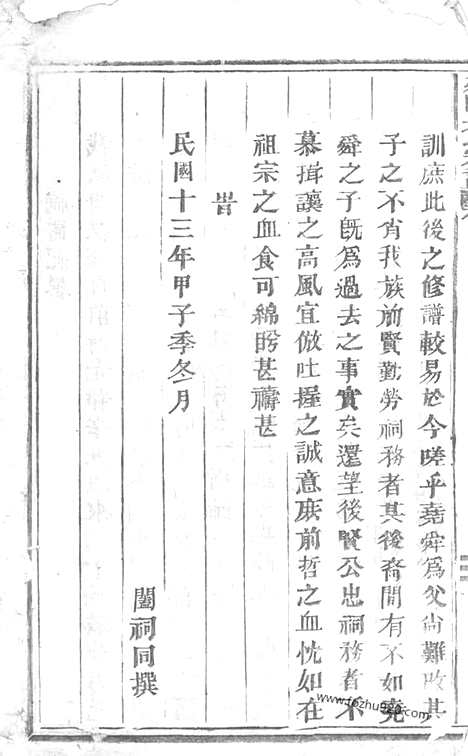 訓庶此後之修譜較易於今嗟乎堯舜爲父尚難改其
子之不肖我族前賢勤勞祠務者其後裔間有不如堯
舜之子旣爲過去之事實矣還望後賢公忠祠務者不
慕揖讓之高風宜倣吐握之誠意庶前哲之血忱如在
祖宗之血食可綿盼甚禱甚
旹
民國十三年甲子季冬月
闔祠同撰
www.fozhu920.com